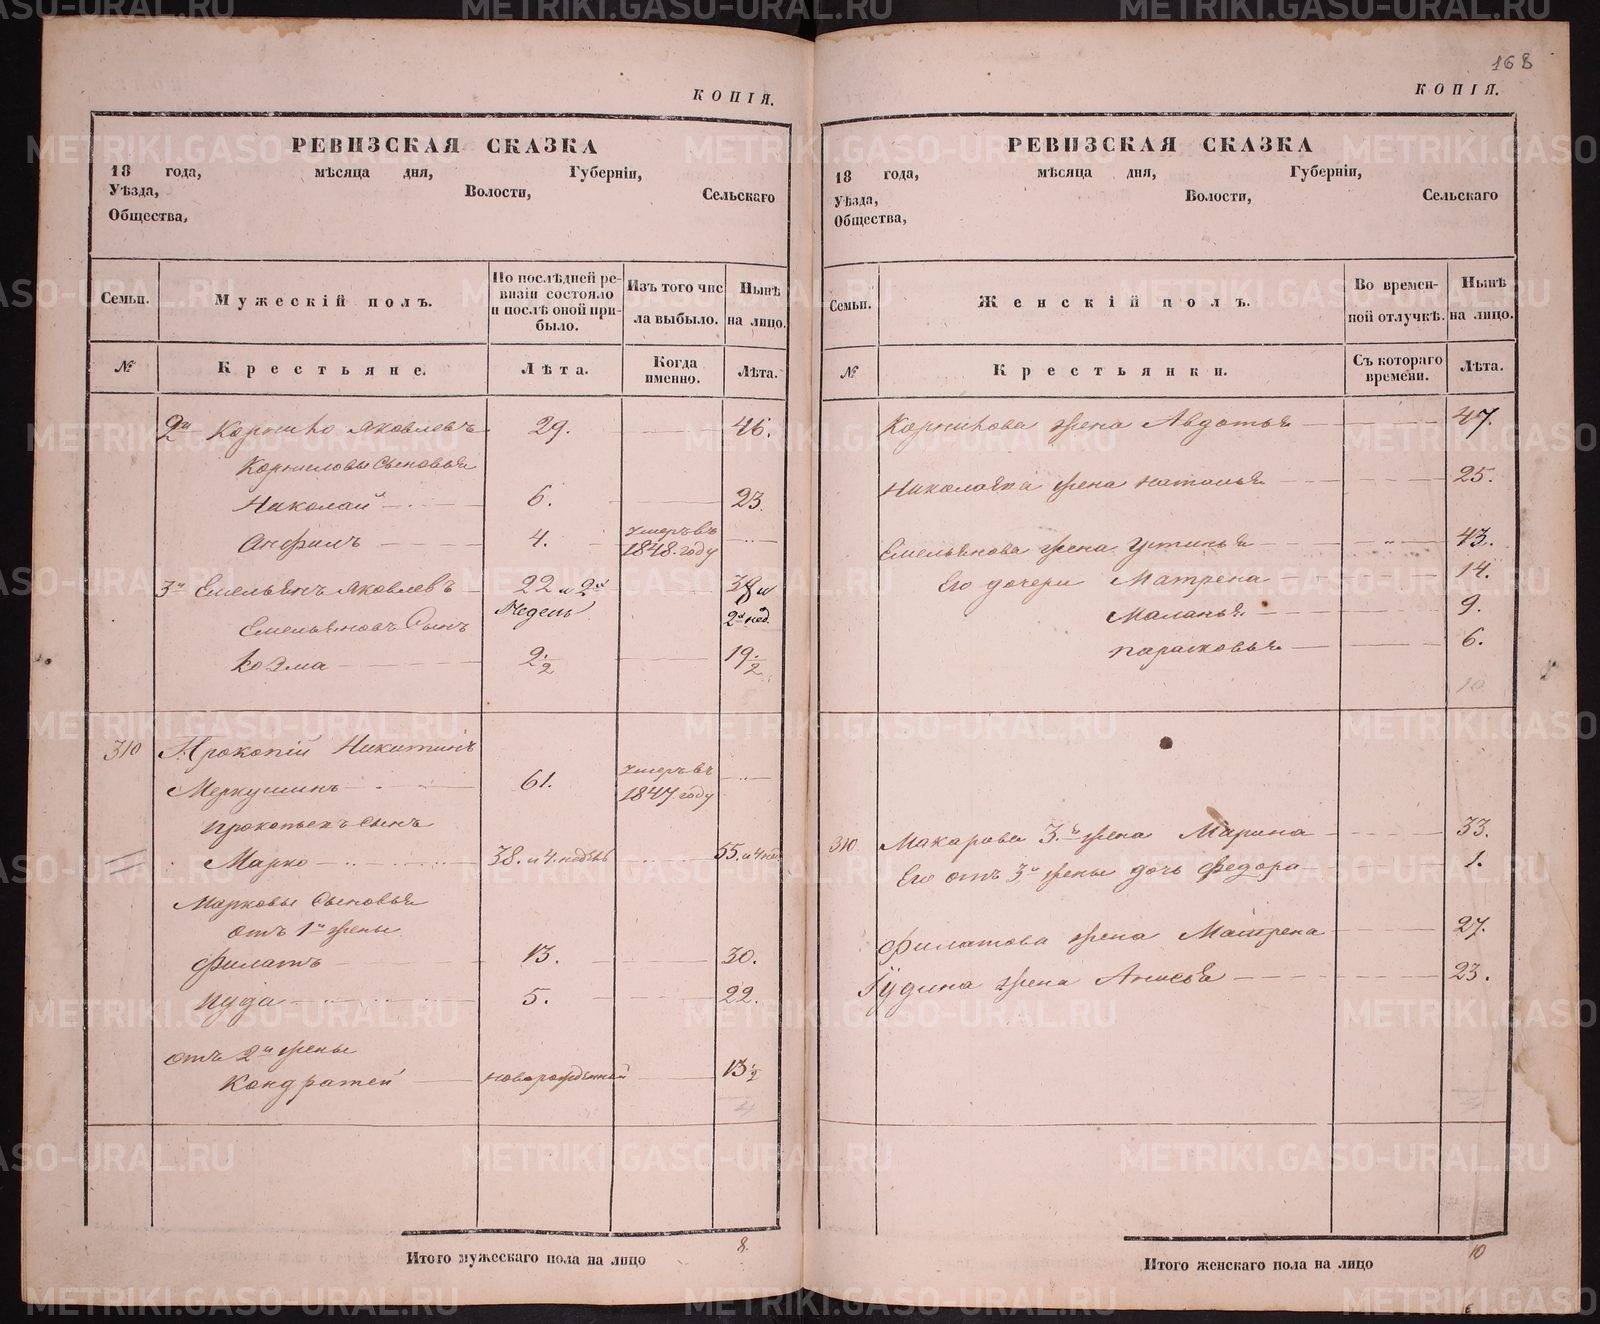 168
КОПІЯ.
РЕВИЗСКАЯ СКАЗКА
18 года, мѣсяца дня, Губерніи,
Уѣзда, Волости, Сельскаго
Общества,
Семьи. Мужескій полъ. По послѣдней ревизіи состояло и послѣ оной прибыло. Изъ того числа выбыло. Нынѣ на лицо.
№ Крестьяне. Лѣта. Когда именно. Лѣта.
2й Корнило Яковлевъ 29. 46.
Корниловы Сыновья
Николай 6. 23.
Анфимъ 4. Умеръ въ 1848. году
3й Емельянъ Яковлевъ 22 и 2 Недель 38 и 2 нед.
Емельяновъ Сынъ
Козма 2½ 19½
310 Прокопій Никитинъ
Меркушинъ 61. Умеръ въ 1847. году
Прокопьевъ Сынъ
Марко 38. и 4. недѣль 55. и 4 нед.
Марковы Сыновья
отъ 1й жены
Филатъ 13. 30.
Іуда 5. 22.
отъ 2й жены
Кондратей новорожденной 13½
Итого мужескаго пола на лицо 8.
КОПІЯ.
РЕВИЗСКАЯ СКАЗКА
18 года, мѣсяца дня, Губерніи,
Уѣзда, Волости, Сельскаго
Общества,
Семьи. Женскій полъ. Во временной отлучкѣ. Нынѣ на лицо.
№ Крестьянки. Съ котораго времени. Лѣта.
Корнилова жена Авдотья 47.
Николаева жена Наталья 25.
Емельянова жена Устинья 43.
Его дочери Матрена 14.
Маланья 9.
Парасковья 6.
10
310 Макарова 3.я жена Марина 33.
Его отъ 3й жены дочь Федора 1.
Филатова жена Матрена 27.
Іудина жена Анисья 23.
Итого женскаго пола на лицо 10
METRIKI.GASO-URAL.RU